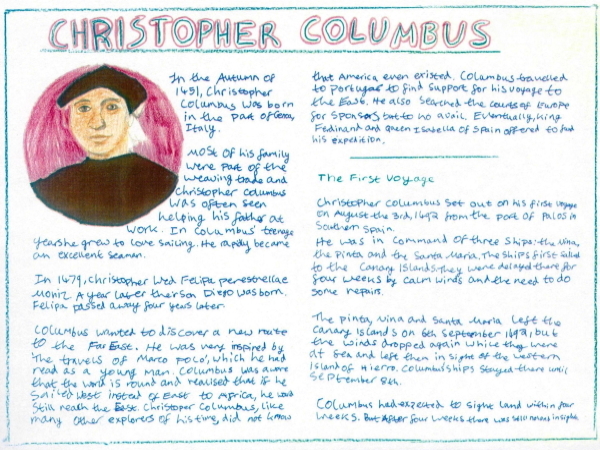 CHRISTOPHER COLUMBUS
In the Autumn of
1451, Christopher
Columbus was born
in the Port of Genoa,
Italy.
Most of his family
were part of the
weaving trade and
Christopher Columbus
was often seen
helping his father at
work. In Columbus teenage
years he grew to love sailing. He rapidly became
an excellent seaman.
In 1479, Christopher Wed Felipa perestrellae
Moniz. A year later their son Diego was born.
Felipa passed away four years later
Columbus wanted to discover a new route
to the Far East. He was very inspired by
'The travels of Marco Polo', which he had
read as a young man. Columbus was aware
that the world is round and realised that if he
Sailed West insted of East to Africa, he would
Still reach the East. Christoper Columbus, like
many other explorers of his time, did not know
that America even existed. Columbus travelled
to Portugal to find support for his voyage to
the East. He also searched the courts of Europe
for sponsors but to no avail. Eventually, King
Ferdinand and Queen Isabella of Spain offered to fund
his expedition.
The First Voyage
Christopher Columbus set out on his first voyage
on August the 3rd, 1492 from the port of Palos in
Southern Spain.
He was in command of three Ships: the Nina,
the Pinta and the Santa Maria. The Ships first sailed
to the Canary Islands. They were delayed there for
four weeks by calm winds and the need to do
some repairs.
The Pinta, Nina and Santa Maria left the
Canary Islands on 6th September 1492, but
the winds dropped again while they were
at Sea and left them in sight of the western
Island of Hierro. Columbus' ships stayed there until
September 8th.
Columbus had expected to sight land within four
weeks. But After four weeks there was still none insight